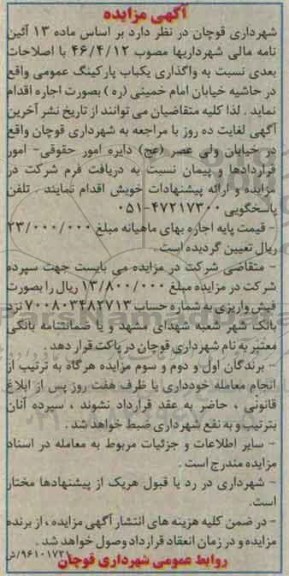 آگهی مزایده
شهرداری قوچان در نظر دارد بر اساس ماده ۱۳ آئین
نامه مالی شهرداریها مصوب ۴۶/۴/۱۲ با اصلاحات
بعدی نسبت به واگذاری یکباب پارکینگ عمومی واقع
در حاشیه خیابان امام خمینی (ره) بصورت اجاره اقدام
نماید . لذا کلیه متقاضیان می توانند از تاریخ نشر آخرین
آگهی لغایت ده روز با مراجعه به شهرداری قوچان واقع
در خیابان ولی عصر (عج) دایره امور حقوقی- امور
قراردادها و پیمان نسبت به دریافت فرم شرکت در
مزایده و ارائه پیشنهادات خویش اقدام نمایند - تلفن
پاسخگویی ۴۷۲۱۷۳۰۰-۰۵۱
- قیمت پایه اجاره بهای ماهیانه مبلغ ۲۳/۰۰۰/۰۰۰
ریال تعیین گردیده است .
- متقاضی شرکت در مزایده می بایست جهت سپرده
شرکت در مزایده مبلغ ۱۳/۸۰۰/۰۰۰ ریال را بصورت
فیش واریزی به شماره حساب ۷۰۰۸۰۳۴۸۲۷۱۳ نزد
بانک شهر شعبه شهدای مشهد و یا ضمانتنامه بانکی
معتبر به نام شهرداری قوچان در پاکت قرار دهد .
- برندگان اول و دوم و سوم مزایده هرگاه به ترتیب از
انجام معامله خودداری یا ظرف هفت روز پس از ابلاغ
قانونی ، حاضر به عقد قرارداد نشوند ، سپرده آنان
بترتیب و به نفع شهرداری ضبط خواهد شد .
- سایر اطلاعات و جزئیات مربوط به معامله در اسناد
مزایده مندرج است .
- شهرداری در رد یا قبول هریک از پیشنهادها مختار
است.
- در ضمن کلیه هزینه های انتشار آگهی مزایده ، از برنده
مزایده و در زمان انعقاد قرارداد وصول خواهد شد .
روابط عمومی شهرداری قوچان